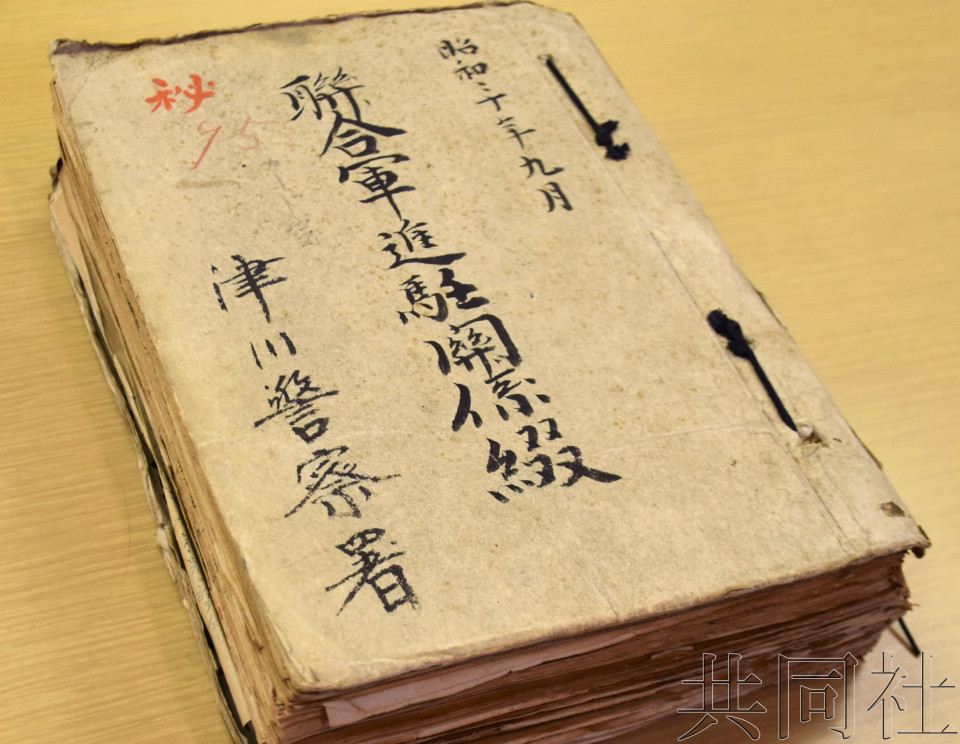 昭和二十年九月
聯合軍進駐関係綴
津川警察署
秘
95
共同社